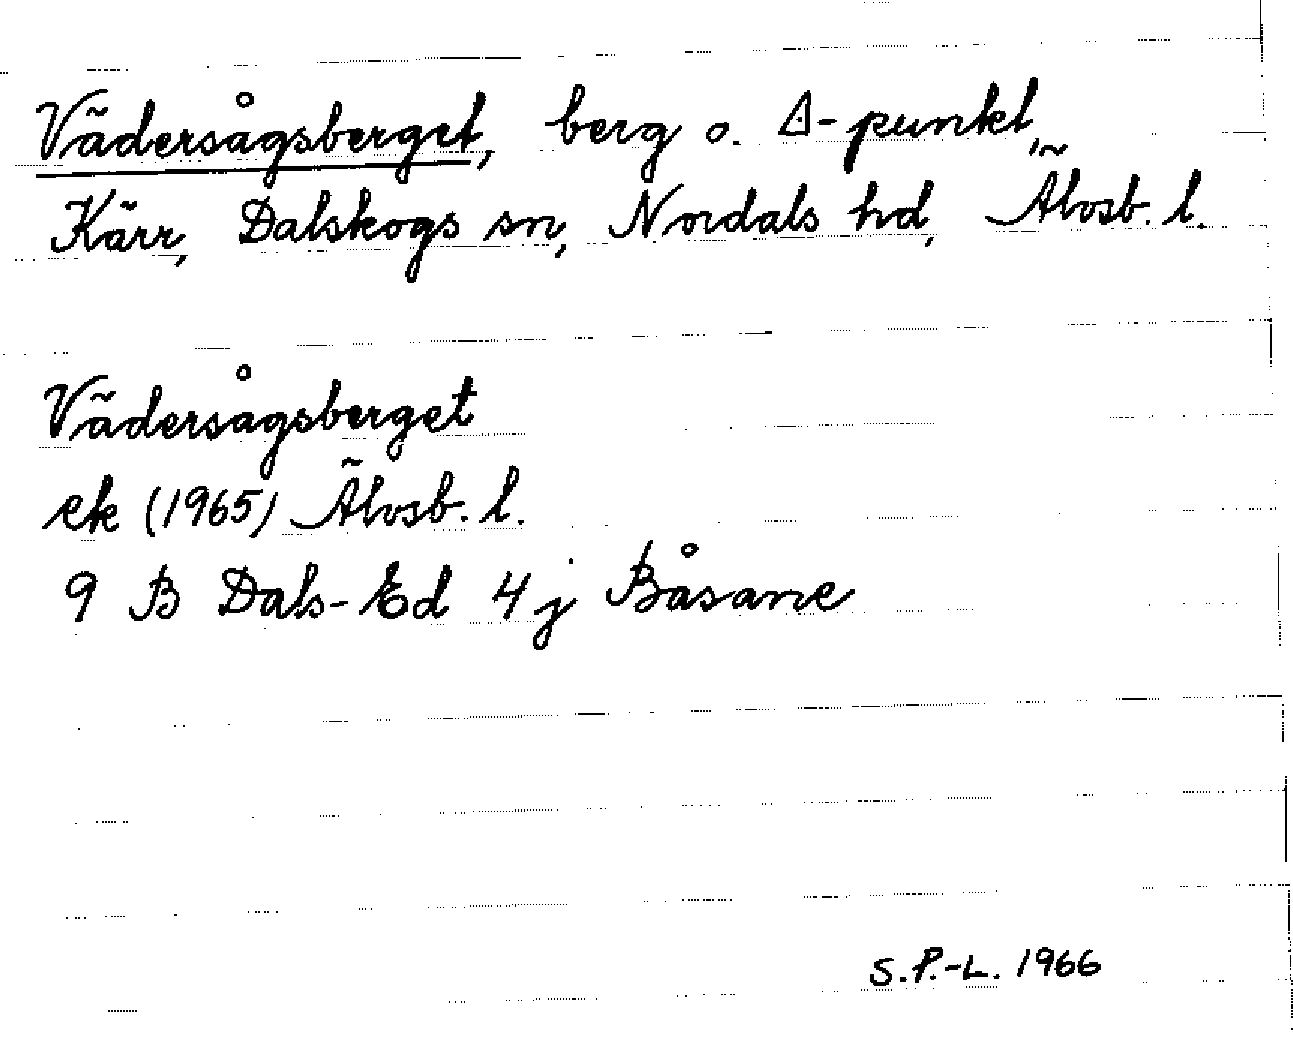 Vädersågsberget, berg o. ◬-punkt,
Kärr, Dalskogs sn, Nordals hd, Älvsb. l.
Vädersågsberget
ek (1965) Älvsb. l.
9 B Dals-Ed 4 j Båsane
S.P.-L. 1966